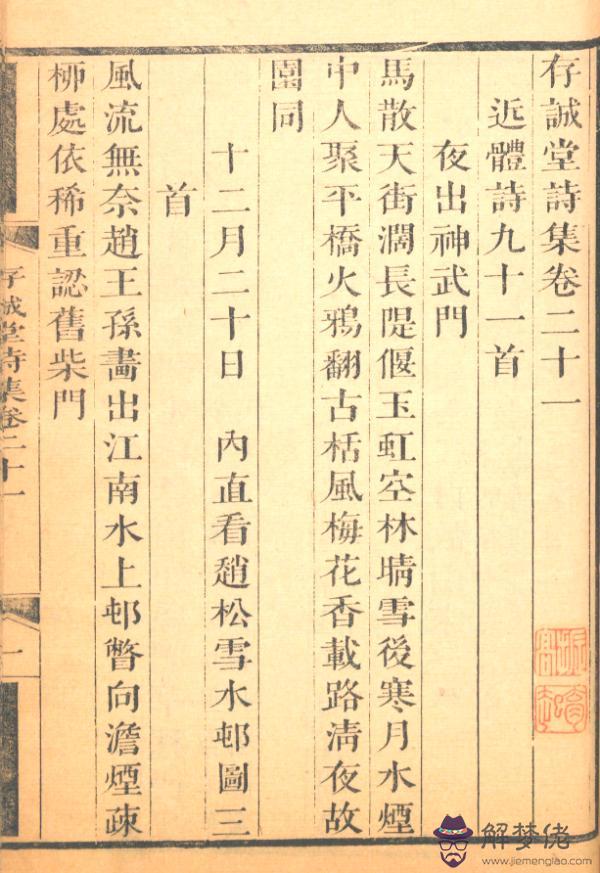 存誠堂詩集卷二十一
近體詩九十一首
夜出神武門
馬散天街濶長隄偃玉虹空林晴雪後寒月水煙
中人聚平橋火鴉翻古栝風梅花香載路淸夜故
園同
十二月二十日　內直看趙松雪水邨圖三
首
風流無奈趙王孫畵出江南水上邨瞥向澹煙疎
柳處依稀重認舊柴門
存誠堂詩集卷二十一
一
解梦佬
www.jiemenglao.com